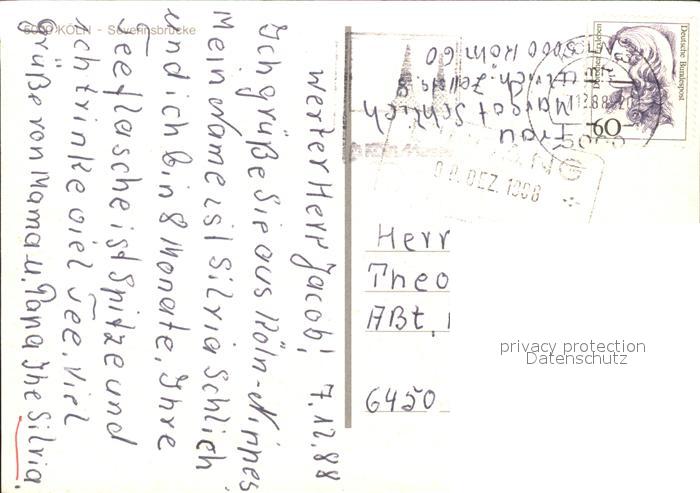 5000 KÖLN - Severinsbrücke
werter Herr Jacob! 7.12.88
Ich grüße Sie aus Köln-Nippes
Mein Name ist Silvia Schlich
und ich bin 8 Monate. Ihre
Teeflasche ist Spitze und
ich trinke viel Tee. Viel
Grüße von Mama u. Papa Ihe Silvia.
Frau
Margot Schlich
5000 Köln 60
Deutsche Bundespost
60
08. DEZ. 1988
Herr
Theo
ABt.
6450
privacy protection
Datenschutz